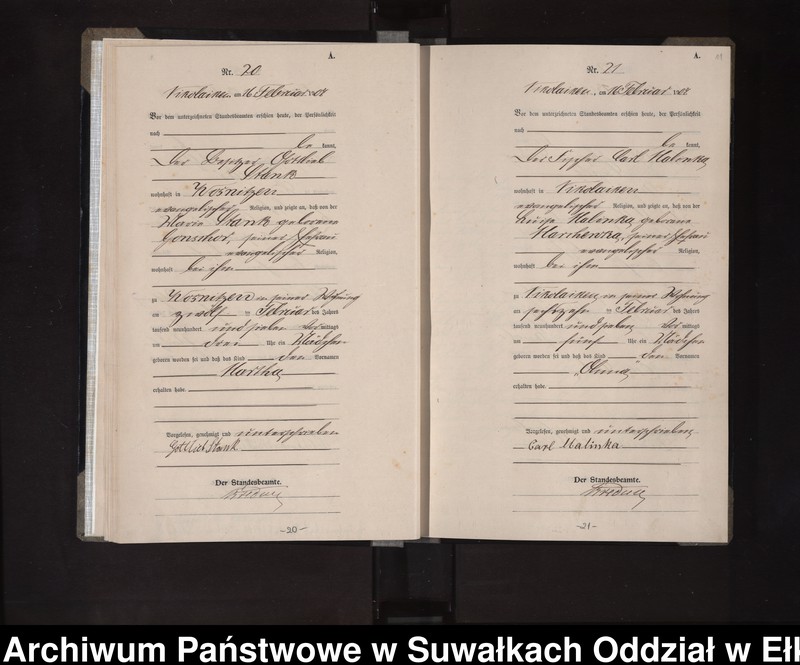 A.
Nr. 20
Nikolaiken, am 16 Februar 1908
Vor dem unterzeichneten Standesbeamten erschien heute, der Persönlichkeit
nach
be kannt,
der Besitzer Gottlieb
wohnhaft in
evangelischer Religion, und zeigte an, daß von der
Marie geborene
seiner Ehefrau
evangelischer Religion,
wohnhaft bei ihm
zu in seiner Wohnung
am zwölf ten Februar des Jahres
tausend neunhundert und sieben Vor mittags
um drei Uhr ein Mädchen
geboren worden sei und daß das Kind den Vornamen
Martha
erhalten habe.
Vorgelesen, genehmigt und unterschrieben
Gottlieb
Der Standesbeamte.
-20-
A.
Nr. 21
Nikolaiken, am 16 Februar 1908
Vor dem unterzeichneten Standesbeamten erschien heute, der Persönlichkeit
nach
be kannt,
der Carl Malinka
wohnhaft in Nikolaiken
evangelischer Religion, und zeigte an, daß von der
Luise Malinka geborene
seiner Ehefrau
evangelischer Religion,
wohnhaft bei ihm
zu Nikolaiken in seiner Wohnung
am sechszehn ten Februar des Jahres
tausend neunhundert und sieben Vor mittags
um fünf Uhr ein Mädchen
geboren worden sei und daß das Kind den Vornamen
erhalten habe.
Vorgelesen, genehmigt und unterschrieben
Carl Malinka
Der Standesbeamte.
-21-
Archiwum Państwowe w Suwałkach Oddział w Eł